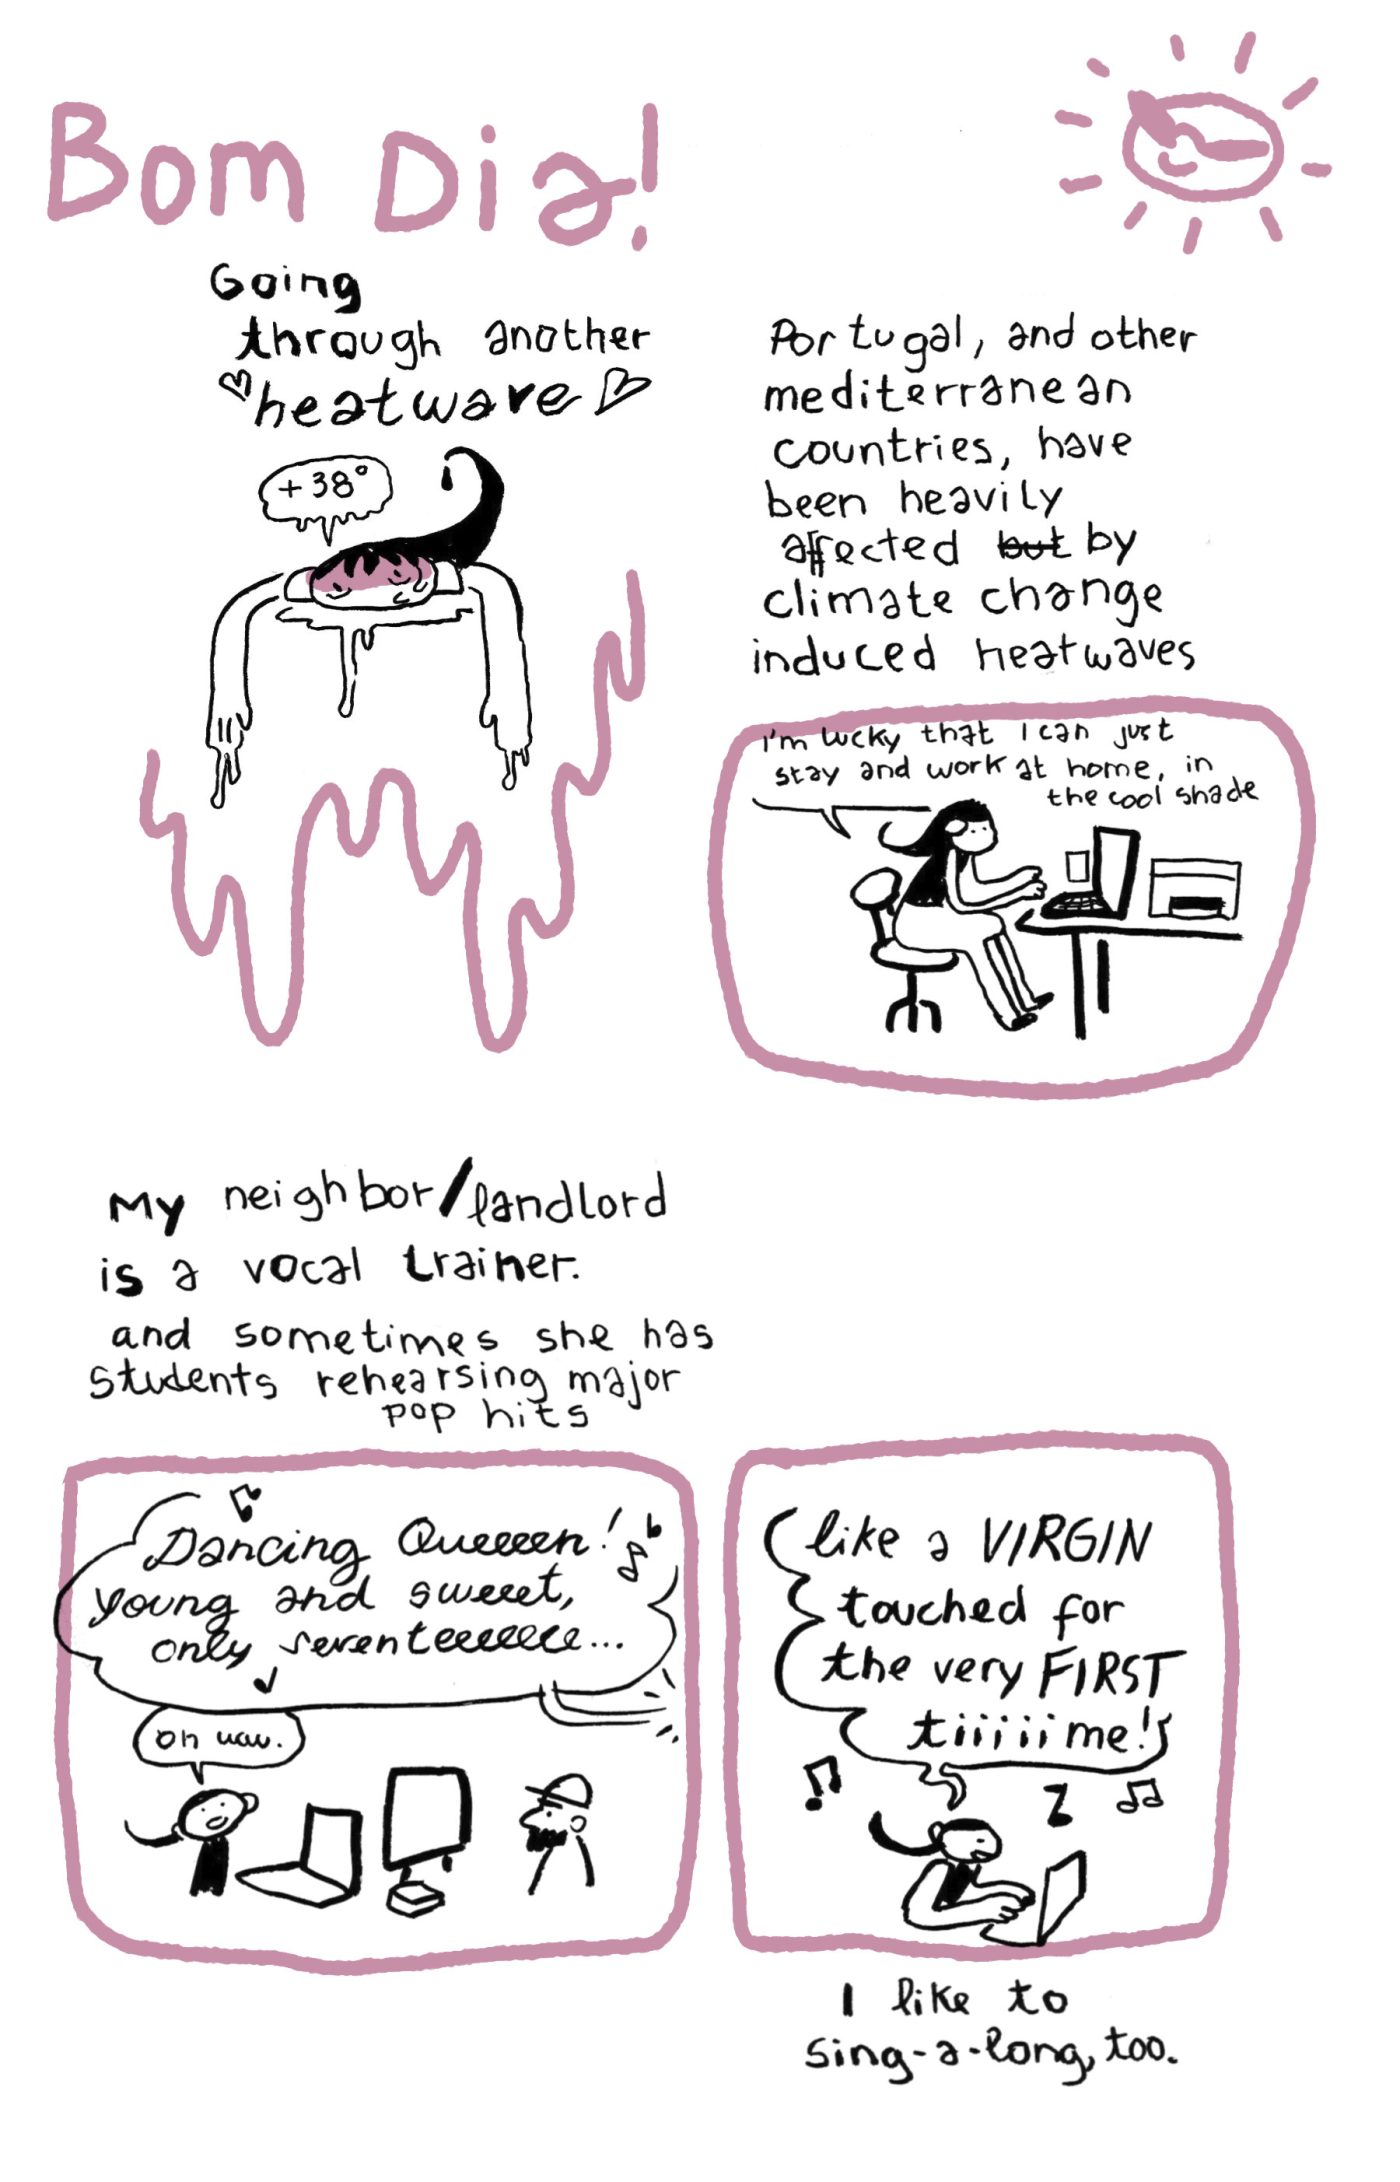 Bom Dia!
Going
through another
heatwave
+38°
Portugal, and other
mediterranean
countries, have
been heavily
affected but by
climate change
induced heatwaves
I'm lucky that I can just
stay and work at home, in
the cool shade
My neighbor/landlord
is a vocal trainer.
and sometimes she has
students rehearsing major
pop hits
Dancing Queeeen!
young and sweeet,
only seventeeeeeee...
oh wow.
like a VIRGIN
touched for
the very FIRST
tiiiiime!
I like to
sing-a-long, too.